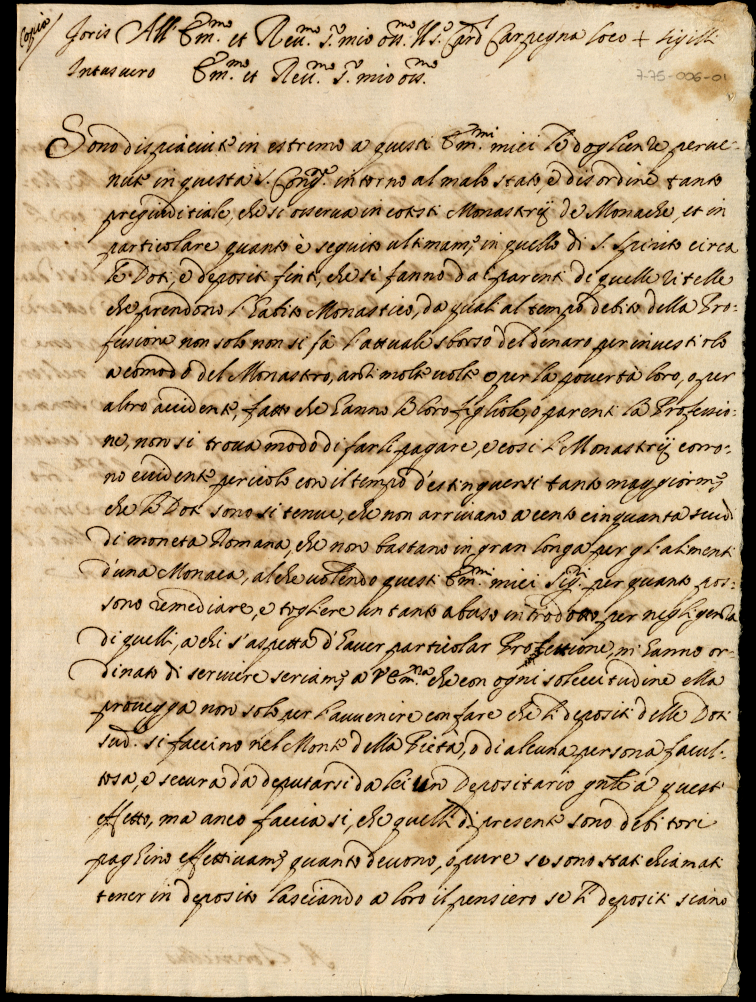 Copia
Foris All' Em.mo et Rev.mo S.r mio oss.mo Il S.r Card.l Carpegna loco + sigilli
7-75-006-01
Intus vero Em.mo et Rev.mo S.r mio oss.mo
Sono dispiaciute in estremo a questi Em.mi miei le doglienze perve-
nute in questa S. Cong.e intorno al malo stato, e disordine tanto
pregiuditiale, che si osserva in cotesti Monasterij de Monache, et in
particolare quanto è seguito ultimam.te in quello di S. Spirito circa
le Doti, e depositi finti, che si fanno da parenti di quelle Zitelle
che prendono l'Habito Monastico, da quali al tempo debito della Pro-
fessione non solo non si fà l'attuale sborso del denaro per investirlo
a comodo del Monastero, anzi molte volte o per la povertà loro, o per
altro accidente, fatto che hanno le loro figliole, o parenti la Professio-
ne, non si trova modo di farli pagare, e così li Monasterij corro-
no evidente pericolo con il tempo d'estinguersi tanto maggiorm.te
che le Doti sono si tenue, che non arrivano a cento cinquanta scudi
di moneta Romana, che non bastano in gran longa per gl'alimenti
d'una Monaca, al che volendo questi Em.mi miei Sig.ri per quanto pos-
sono remediare, e togliere un tanto abuso introdotto per negligenza
di quelli, a chi s'aspetta d'haver particolar Protettione, m'hanno or-
dinato di scrivere seriam.te a V. Em.za che con ogni sollecitudine ella
provegga non solo per l'avvenire con fare che li depositi delle Doti
sud.e si faccino nel Monte della Pietà, o di alcuna persona facul-
tosa, e secura da deputarsi da lei un Depositario gn̄le a questi
effetto, ma anco faccia si, che quelli di presente sono debitori
paghino effettivam.te quanto devono, o pure se sono stati chiamati
tener in deposito lasciando a loro il pensiero se li depositi siano